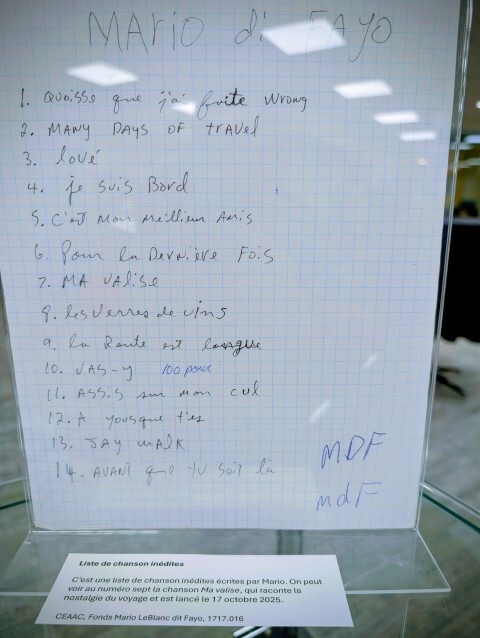 MARIO di FAYO
1. Quoisse que j'ai fuite wrong
2. MANY DAYS OF travel
3. lové
4. je suis Bord
5. C'est mon meillieur Amis
6. Pour la Dernière Fois
7. MA valise
8. les verres de vins
9. la Route est longue
10. VAS-y 100 pour
11. ASSis sur mon cul
12. A yousque t'es
13. JAY WALK
14. AVANT que tu soit là
MDF
mdF
Liste de chanson inédites
C'est une liste de chanson inédites écrites par Mario. On peut
voir au numéro sept la chanson Ma valise, qui raconte la
nostalgie du voyage et est lancé le 17 octobre 2025.
CEAAC, Fonds Mario LeBlanc dit Fayo, 1717.016